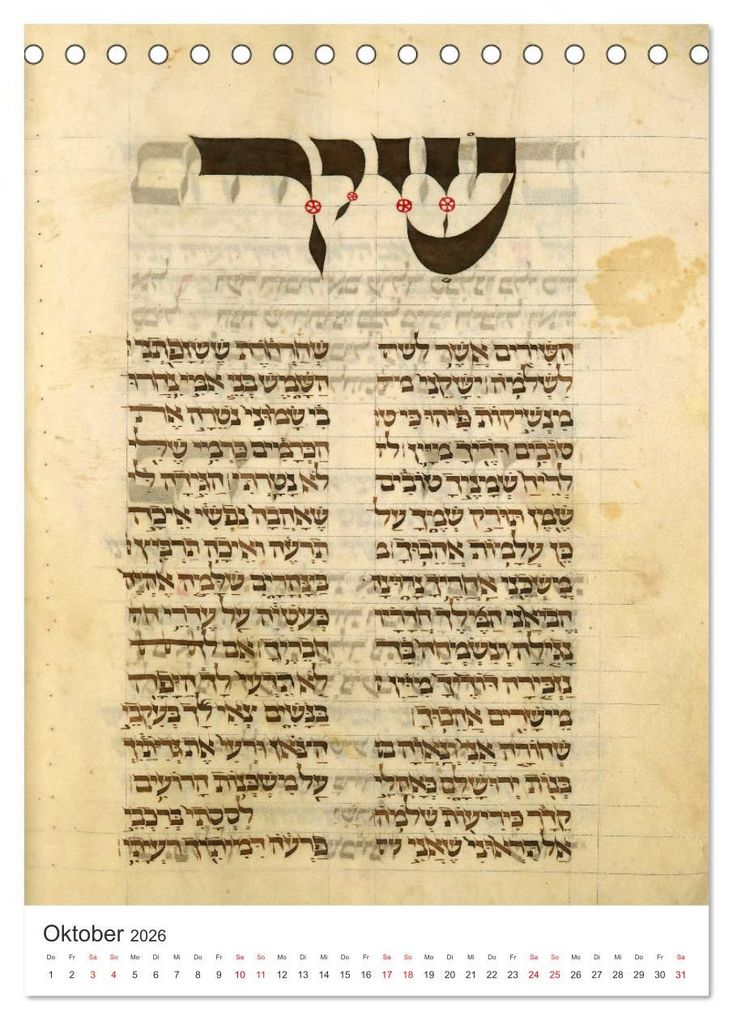 שיר
השירים אשר
לשלמה ישקני
מנשיקות פיהו כי
טובים דדיך מיין
לריח שמניך טובים
שמן תורק שמך על
כן עלמות אהבוך
משכני אחריך נרוצה
הביאני המלך חדריו
נגילה ונשמחה בך
נזכירה דודיך מיין
מישרים אהבוך
שחורה אני ונאוה
בנות ירושלם כאהלי
קדר כיריעות שלמה
אל תראוני שאני
שחרחרת ששזפתני
השמש בני אמי נחרו
בי שמוני נטרה את
הכרמים כרמי שלי
לא נטרתי הגידה לי
שאהבה נפשי איכה
תרעה איכה תרביץ
בצהרים שלמה אהיה
כעטיה על עדרי
חבריך אם
לא תדעי לך היפה
בנשים צאי לך בעקבי
הצאן ורעי את גדיתיך
על משכנות הרועים
לססתי ברכבי
פרעה דמיתיך רעיתי
Oktober 2026
Do Fr Sa So Mo Di Mi Do Fr Sa So Mo Di Mi Do Fr Sa So Mo Di Mi Do Fr Sa So Mo Di Mi Do Fr Sa
1 2 3 4 5 6 7 8 9 10 11 12 13 14 15 16 17 18 19 20 21 22 23 24 25 26 27 28 29 30 31